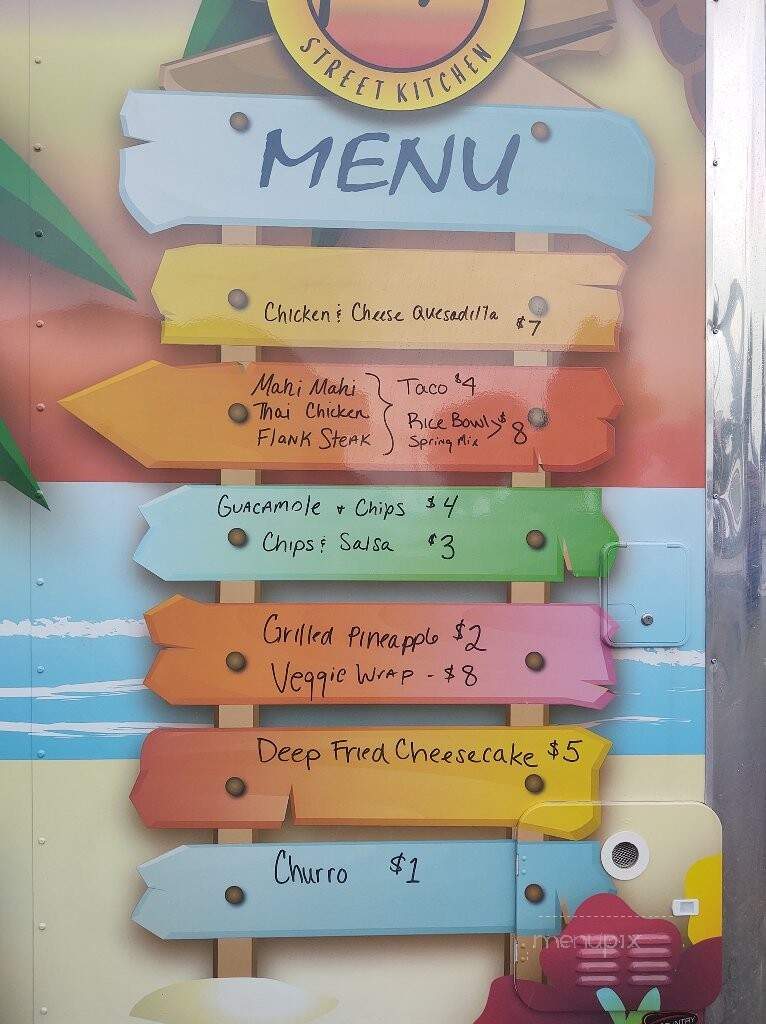 STREET KITCHEN
MENU
Chicken & Cheese Quesadilla $7
Mahi Mahi } Taco $4
Thai Chicken Rice Bowl > $8
Flank Steak Spring Mix
Guacamole + Chips $4
Chips & Salsa $3
Grilled Pineapple $2
Veggie Wrap - $8
Deep Fried Cheesecake $5
Churro $1
menupix